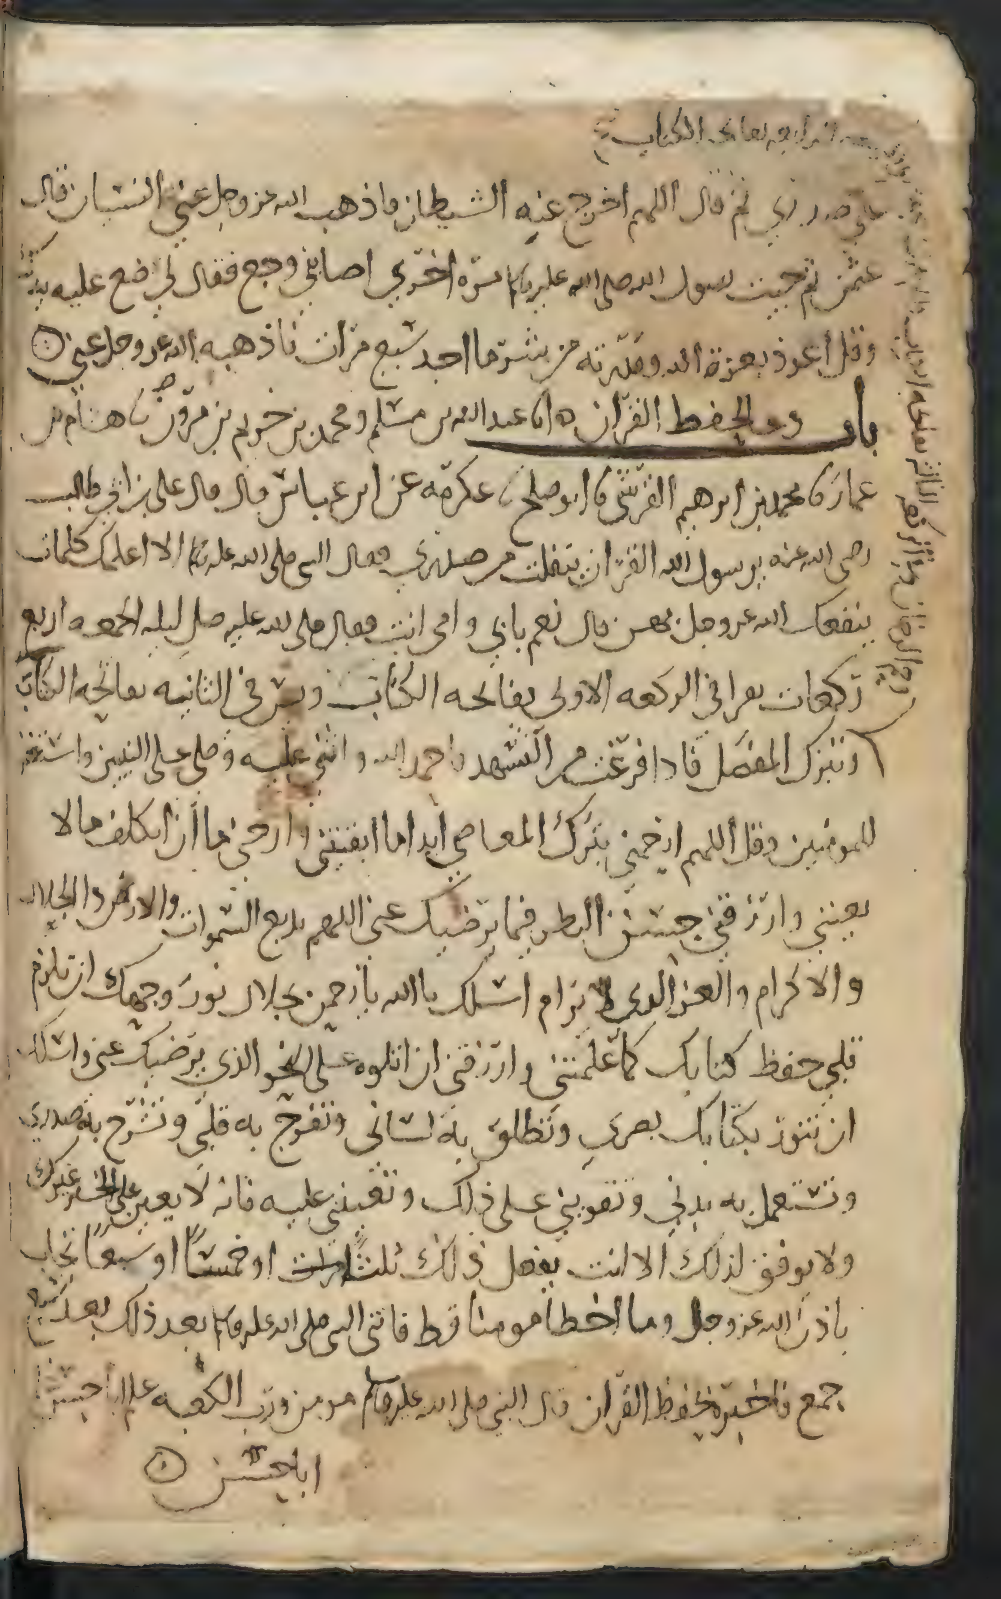 على صدري ثم قال اللهم اخرج عنه الشيطان فاذهب الله عز وجل عني النسيان قال
عثمن ثم جيت رسول الله صلى الله عليه وسلم مرة اخرى اصابني وجع فقال لي ضع عليه يدك
وقل اعوذ بعزة الله وقدرته من شر ما اجد سبع مرات فاذهبه الله عز وجل عني
باب دعا لحفظ القرآن انا عبد الله بن مسلم ومحمد بن خريم بن مروان نا هشام بن
عمار نا محمد بن ابرهيم القرشي نا ابو صلح عكرمة عن ابن عباس قال قال علي بن ابي طالب
رضي الله عنه يرسول الله القرآن يتفلت من صدري فقال النبي صلى الله عليه وسلم الا اعلمك كلمات
ينفعك الله عز وجل بهن قال نعم بابي وامي انت فقال صلى الله عليه صل ليله الجمعه اربع
ركعات تقرا في الركعه الاولى بفاتحه الكتاب ويس وفي الثانيه بفاتحه الكتاب
وتبرك المفصل فاذا فرغت من التشهد فاحمد الله واثني عليه وصلي على النبيين واستغفر
للمومنين وقل اللهم ارحمني بترك المعاصي ابدا ما ابقيتني وارحمني ما ان اتكلف ما لا
يعنيني وارزقني حسن النظر فيما يرضيك عني اللهم بديع السموات والارض ذا الجلال
والاكرام والعز الذي لا يرام اسلك يا الله يا رحمن بجلال نور وجهك ان تلزم
قلبي حفظ كتابك كما علمتني وارزقني ان اتلوه على النحو الذي يرضيك عني واسلك
ان تنور بكتابك بصري وتطلق به لساني وتفرج به قلبي وتشرح به صدري
وتستعمل به بدني وتقويني على ذلك وتعينني عليه فانه لا يعين على الخير غيرك
ولا يوفق لذلك الا انت يفعل ذلك ثلثا او خمسا او سبعا تجاب
باذن الله عز وجل وما اخطا مومنا قط فاتى النبي صلى الله عليه وسلم بعد ذلك بعد سبع
جمع فاخبره بحفظ القرآن قال النبي صلى الله عليه وسلم مومن ورب الكعبه علم ابا حسن
ابا حسن